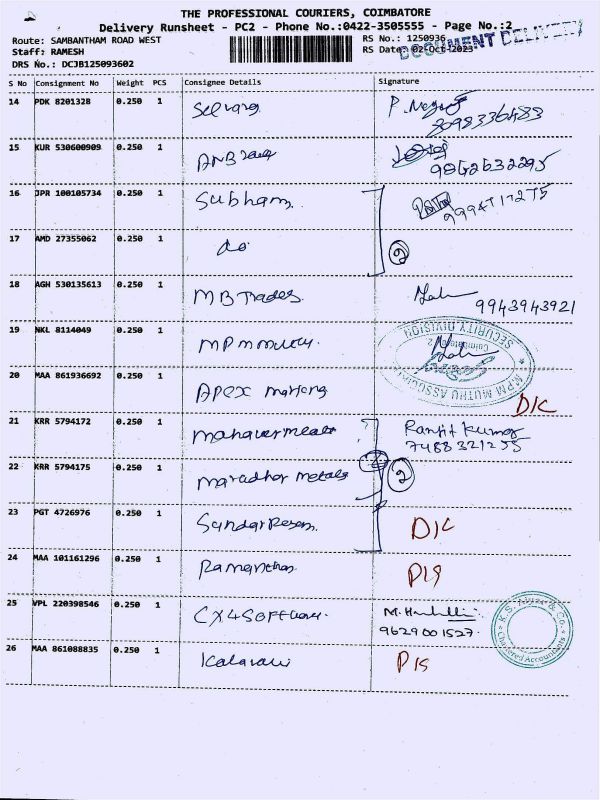 THE PROFESSIONAL COURIERS, COIMBATORE
Delivery Runsheet - PC2 - Phone No.:0422-3505555 - Page No.:2
Route: SAMBANTHAM ROAD WEST RS No.: 1250936
Staff: RAMESH RS Date: 02-Oct-2023
DOCUMENT DELIVERY
DRS No.: DCJB125093602
S No Consignment No Weight PCS Consignee Details Signature
14 PDK 8201328 0.250 1 Selvarg
15 KUR 530600909 0.250 1 9842632295
16 JPR 100105734 0.250 1 Subham 9994717275
17 AMD 27355062 0.250 1 do 2
18 AGH 530135613 0.250 1 MB Trades 9943943921
19 NKL 8114049 0.250 1
MPM MUTHU ASSOCIA
SECURITY DIVISION
Coimbatore 2
20 MAA 861936692 0.250 1 Apex D/C
21 KRR 5794172 0.250 1 Ranjit Kumar
7488321255
22 KRR 5794175 0.250 1 maradhar metals 2
23 PGT 4726976 0.250 1 D/C
24 MAA 101161296 0.250 1 Ramanthan D/S
25 VPL 220398546 0.250 1 CX4Software
9629001527
Chartered Accountants
26 MAA 861088835 0.250 1 Kalavani D/S